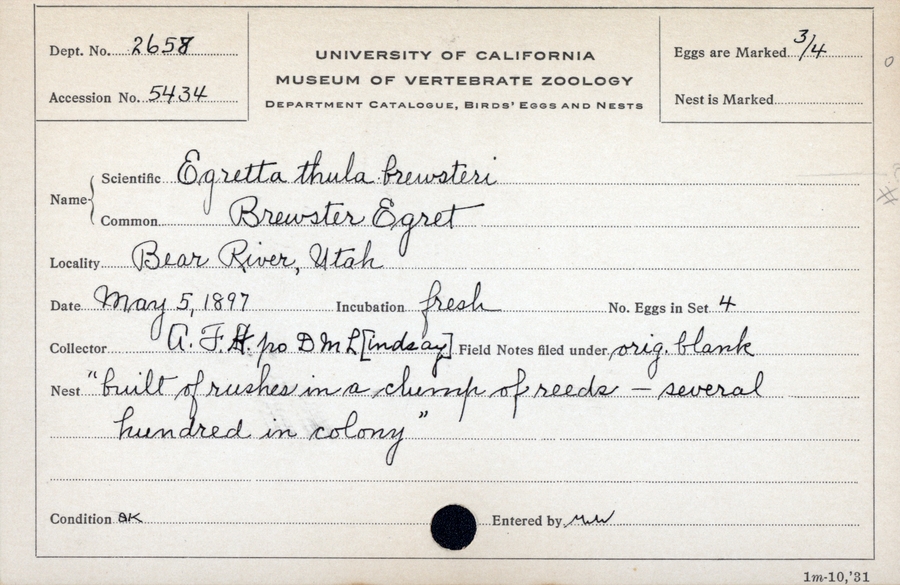 Dept. No. 2658
UNIVERSITY OF CALIFORNIA
MUSEUM OF VERTEBRATE ZOOLOGY
DEPARTMENT CATALOGUE, BIRDS' EGGS AND NESTS
Eggs are Marked 3/4
Accession No. 5434
Nest is Marked
Name Scientific Egretta thula brewsteri
Common Brewster Egret
Locality Bear River, Utah
Date May 5, 1897 Incubation fresh No. Eggs in Set 4
Collector A. F. H. po D M L[indsay] Field Notes filed under orig. blank
Nest "built of rushes in a clump of reeds — several
hundred in colony"
Condition OK Entered by
1m-10,'31